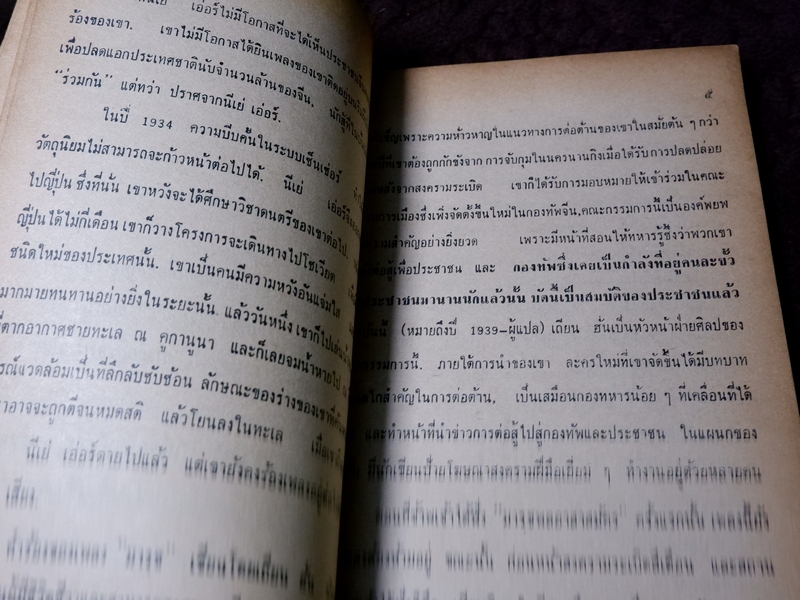 เอ่อร์ไม่มีโอกาสที่จะได้เห็นประชาชน
ร้องของเขา. เขาไม่มีโอกาสได้ยินเพลงของเขาติดอยู่บน
เพื่อปลดแอกประเทศชาตินับจำนวนล้านของจีน.
"ร่วมกัน" แต่ทว่า ปราศจากนีเย่ เอ่อร์.
ในปี 1934 ความบีบคั้นในระบบเซ็นเซ่อร์
วัตถุนิยมไม่สามารถจะก้าวหน้าต่อไปได้. นีเย่ เอ่อร์
ไปญี่ปุ่น ซึ่งที่นั้น เขาหวังจะได้ศึกษาวิชาดนตรีของเขาต่อไป.
ญี่ปุ่นได้ไม่กี่เดือน เขาก็วางโครงการจะเดินทางไปโซเวียต
ชนิดใหม่ของประเทศนั้น. เขาเป็นคนมีความหวังอันแจ่มใส
มากมายทนทานอย่างยิ่งในระยะนั้น แล้ววันหนึ่ง เขาก็ไป
ที่ตากอากาศชายทะเล ณ คูกานูนา และก็เลยจมน้ำหายไป
แวดล้อมเป็นที่ลึกลับซับซ้อน ลักษณะของร่างของเขาที่
อาจจะถูกตีจนหมดสติ แล้วโยนลงในทะเล
นีเย่ เอ่อร์ตายไปแล้ว แต่เขายังคงร้องเพลงอยู่
เสียง.
คำร้องของเพลง "มารช" เขียนโดยเถียน ฮั่น
๕
เพราะความห้าวหาญในแนวทางการต่อต้านของเขาในสมัยต้น ๆ กว่า
ปีที่เขาต้องถูกกักขังจาก การจับกุมในนครนานกิงเมื่อได้รับการปลดปล่อย
หลังจากสงครามระเบิด เขาก็ได้รับการมอบหมายให้เข้าร่วมในคณะ
การเมืองซึ่งเพิ่งจัดตั้งขึ้นใหม่ในกองทัพจีน,คณะกรรมการนี้เป็นองค์พยพ
ความสำคัญอย่างยิ่งยวด เพราะมีหน้าที่สอนให้ทหารรู้ซึ้งว่าพวกเขา
ต่อสู้เพื่อประชาชน และ กองทัพซึ่งเคยเป็นกำลังที่อยู่คนละขั้ว
ประชาชนมานานนักแล้วนั้น บัดนี้เป็นสมบัติของประชาชนแล้ว
(หมายถึงปี 1939–ผู้แปล) เถียน ฮั่นเป็นหัวหน้าฝ่ายศิลปของ
กรรมการนี้. ภายใต้การนำของเขา ละครใหม่ที่เขาจัดขึ้นได้มีบทบาท
สำคัญในการต่อต้าน, เป็นเสมือนกองทหารน้อย ๆ ที่เคลื่อนที่ได้
และทำหน้าที่นำข่าวการต่อสู้ไปสู่กองทัพและประชาชน ในแผนกของ
มีนักเขียนป้ายโฆษณาสงครามฝีมือเยี่ยม ๆ ทำงานอยู่ด้วยหลายคน
ตอนที่ข้าพเจ้าได้ฟัง ครั้งแรกนั้น เพลงนี้ยัง
อยู่ ขณะนั้น ก่อนหน้าสงครามระเบิดสี่เดือน และสถาน